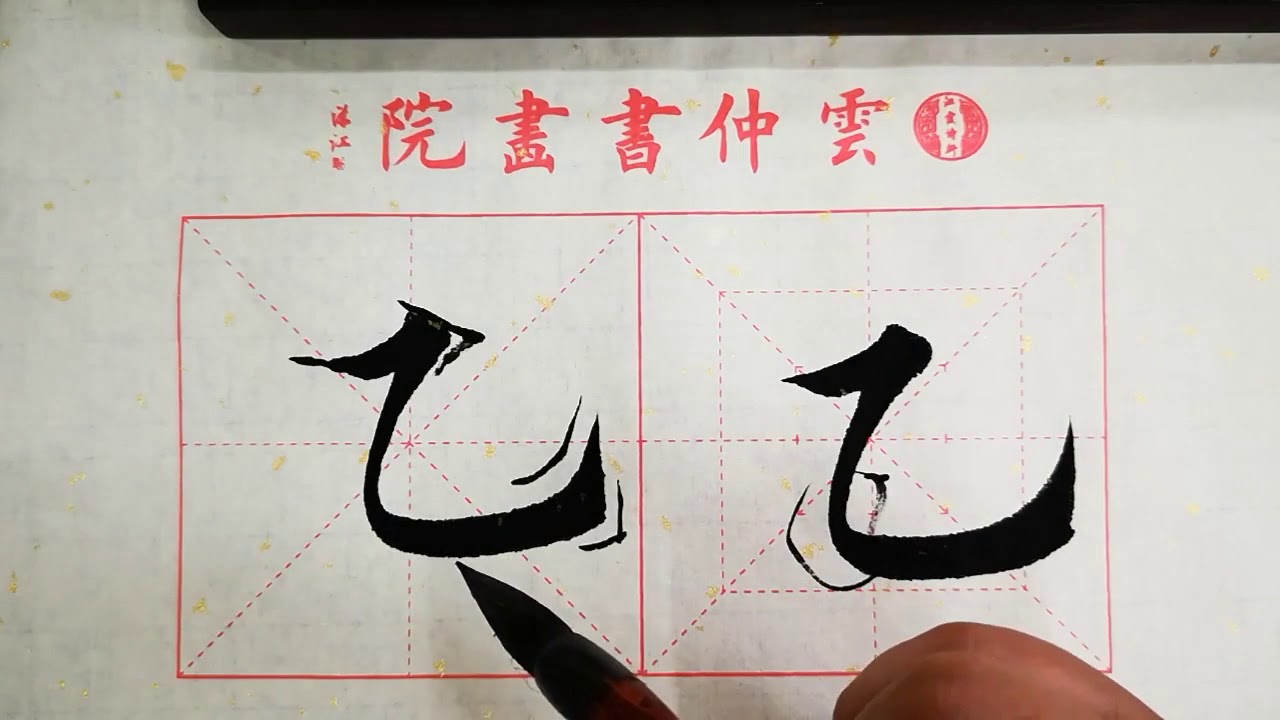 雲仲書畫院
乙 乙